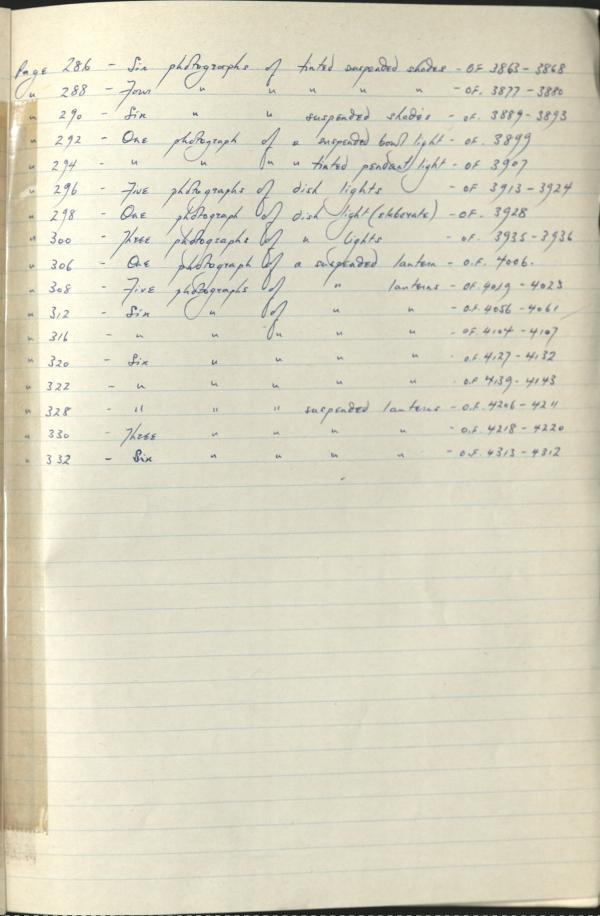 Page 286 - Six photographs of tinted suspended shades - OF 3863-3868
" 288 - Four " " " " " - OF. 3877-3880
" 290 - Six " " suspended shades - OF. 3889-3893
" 292 - One photograph of a suspended bowl light - OF. 3899
" 294 - " " " " tinted pendant light - OF 3907
" 296 - Five photographs of dish lights - OF 3913-3924
" 298 - One photograph of dish light (elaborate) - OF. 3928
" 300 - Three photographs of " lights - OF. 3935-3936
" 306 - One photograph of a suspended lantern - O.F. 4006.
" 308 - Five photographs of " lanterns - OF. 4019-4023
" 312 - Six " of " " - O.F. 4056-4061
" 316 - " " " " " - OF. 4104-4107
" 320 - Six " " " " - O.F. 4127-4132
" 322 - " " " " " - OF 4139-4143
" 328 - " " " suspended lanterns - O.F. 4206-4211
" 330 - Three " " " " - O.F. 4218-4220
" 332 - Six " " " " - O.F. 4313-4312